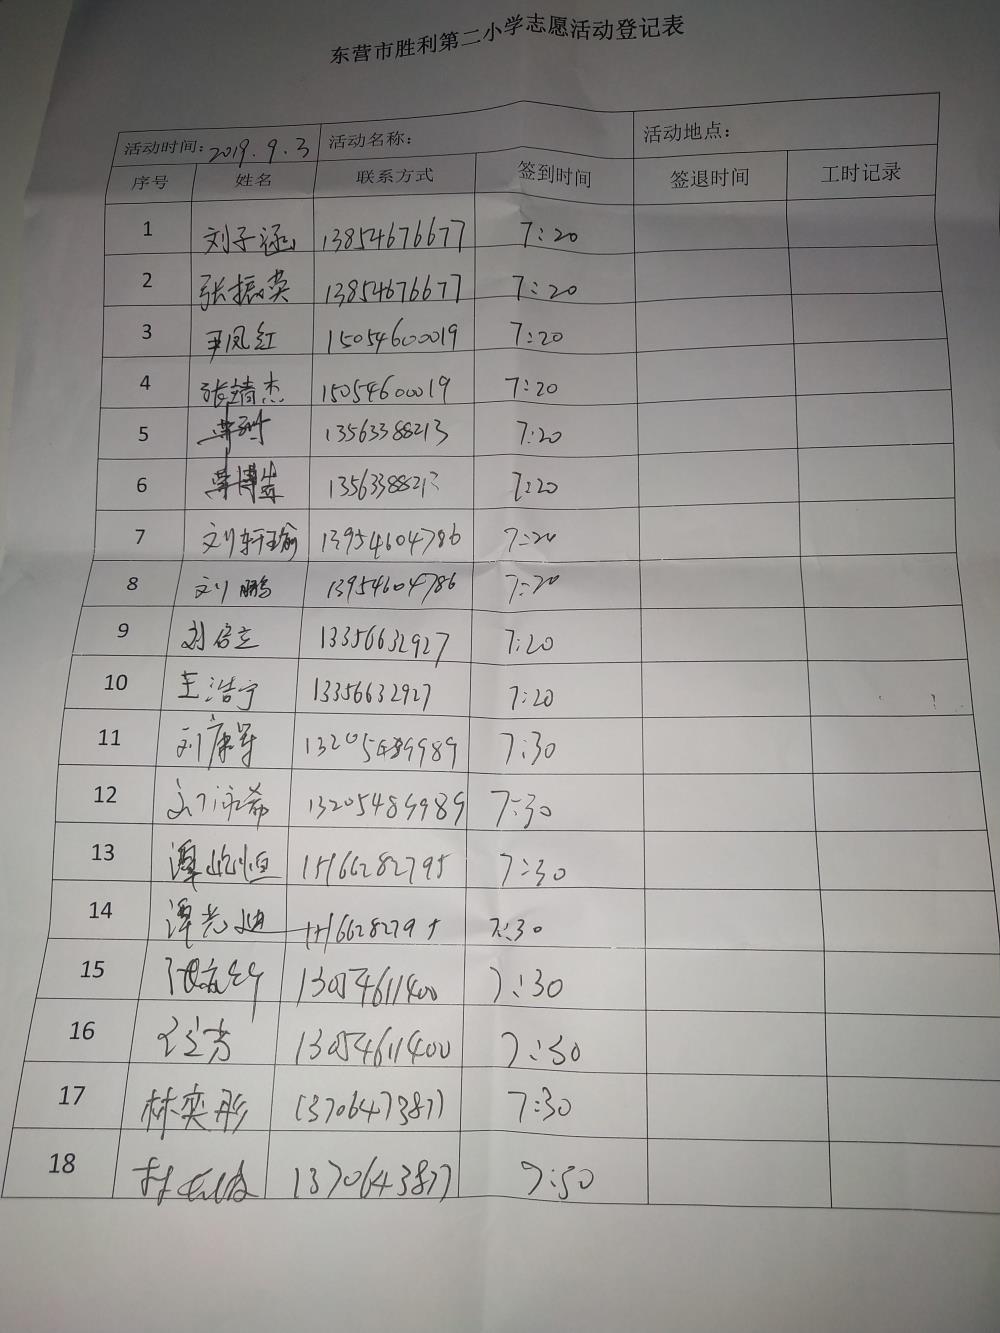 东营市胜利第二小学志愿活动登记表
活动时间：2019.9.3 活动名称： 活动地点：
序号 姓名 联系方式 签到时间 签退时间 工时记录
1 刘子涵 13854676677 7:20
2 张振英 13854676677 7:20
3 尹凤红 15054600019 7:20
4 张靖杰 15054600019 7:20
5 13563388213 7:20
6 13563388213 7:20
7 刘轩瑜 13954604786 7:20
8 刘鹏 13954604786 7:20
9 刘倍立 13356632927 7:20
10 王浩宁 13356632927 7:20
11 刘康军 13205489989 7:30
12 刘泳希 13205489989 7:30
13 谭屹恒 15166282795 7:30
14 谭光迪 15166282795 7:30
15 13054611400 7:30
16 13054611400 7:30
17 林奕彤 13706473877 7:30
18 1370643877 7:50